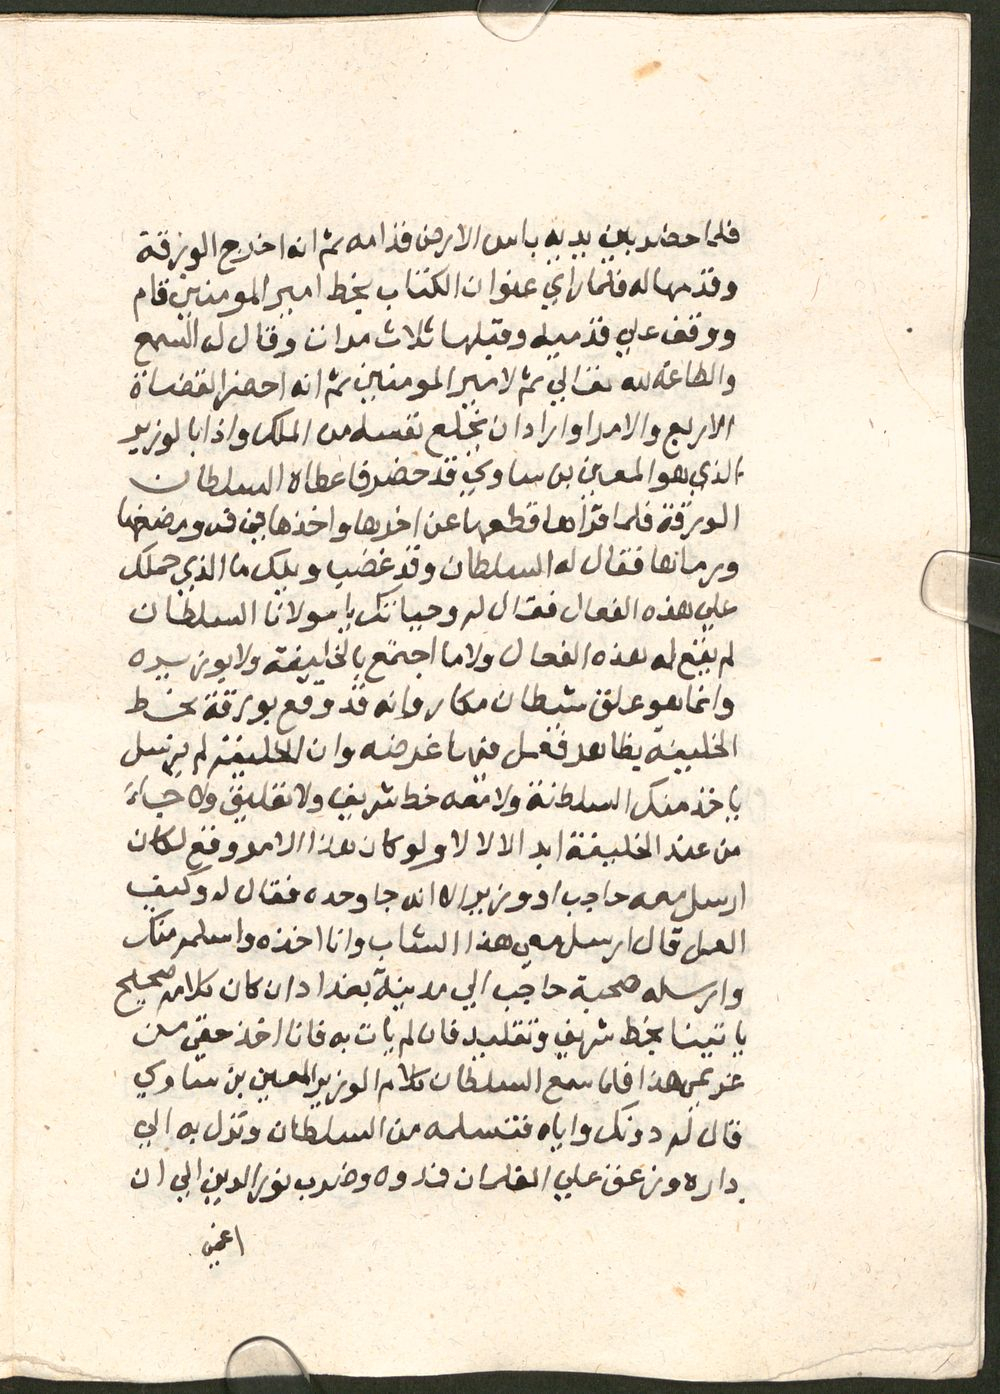 فلما حضر بين يديه باس الارض قدامه ثم انه اخرج الورقة
وقدمها له فلما راي عنوان الكتاب بخط امير المومنين قام
ووقف علي قدميه وقبلها ثلاث مرات وقال له السمع
والطاعة لله تعالي ثم لامير المومنين ثم انه احضر القضاة
الاربع والامرا واراد ان يخلع نفسه من الملك واذا بالوزير
الذي هو المعين بن ساوي قد حضر فاعطاه السلطان
الورقة فلما قراها قطعها عن اخرها واخذها في فمه ومضغها
ورماها فقال له السلطان وقد غضب ويلك ما الذي حملك
علي هذه الفعال فقال له وحياتك يا مولانا السلطان
لم يقع له هذه الفعال ولا ما اجتمع بالخليفة ولا بوزيره
وانما هو علق شيطان مكار وانه قد وقع بورقة بخط
الخليفة بظاهر فعمل فيها غرضه وان الخليفة لم يرسل
ياخذ منك السلطنة ولا معه خط شريف ولا تقليق ولا جاء
من عند الخليفة ابدا لا لا لا ولو كان هذا الامر وقع لكان
ارسل معه حاجب او وزير الا انه جا وحده فقال له وكيف
العمل قال ارسل معي هذا الشاب وانا اخذه واسلمه منك
وارسله صحبة حاجب الي مدينة بغداد ان كان كلامه صحيح
ياتينا بخط شريف وتقليد فان لم يات به فانا اخذ حقي من
غريمي هذا فلما سمع السلطان كلام الوزير المعين بن ساوي
قال له دونك واياه فتسلمه من السلطان ونزل به الي
داره وزعق علي الغلمان فمدوه وضرب نور الدين الي ان
اغمي